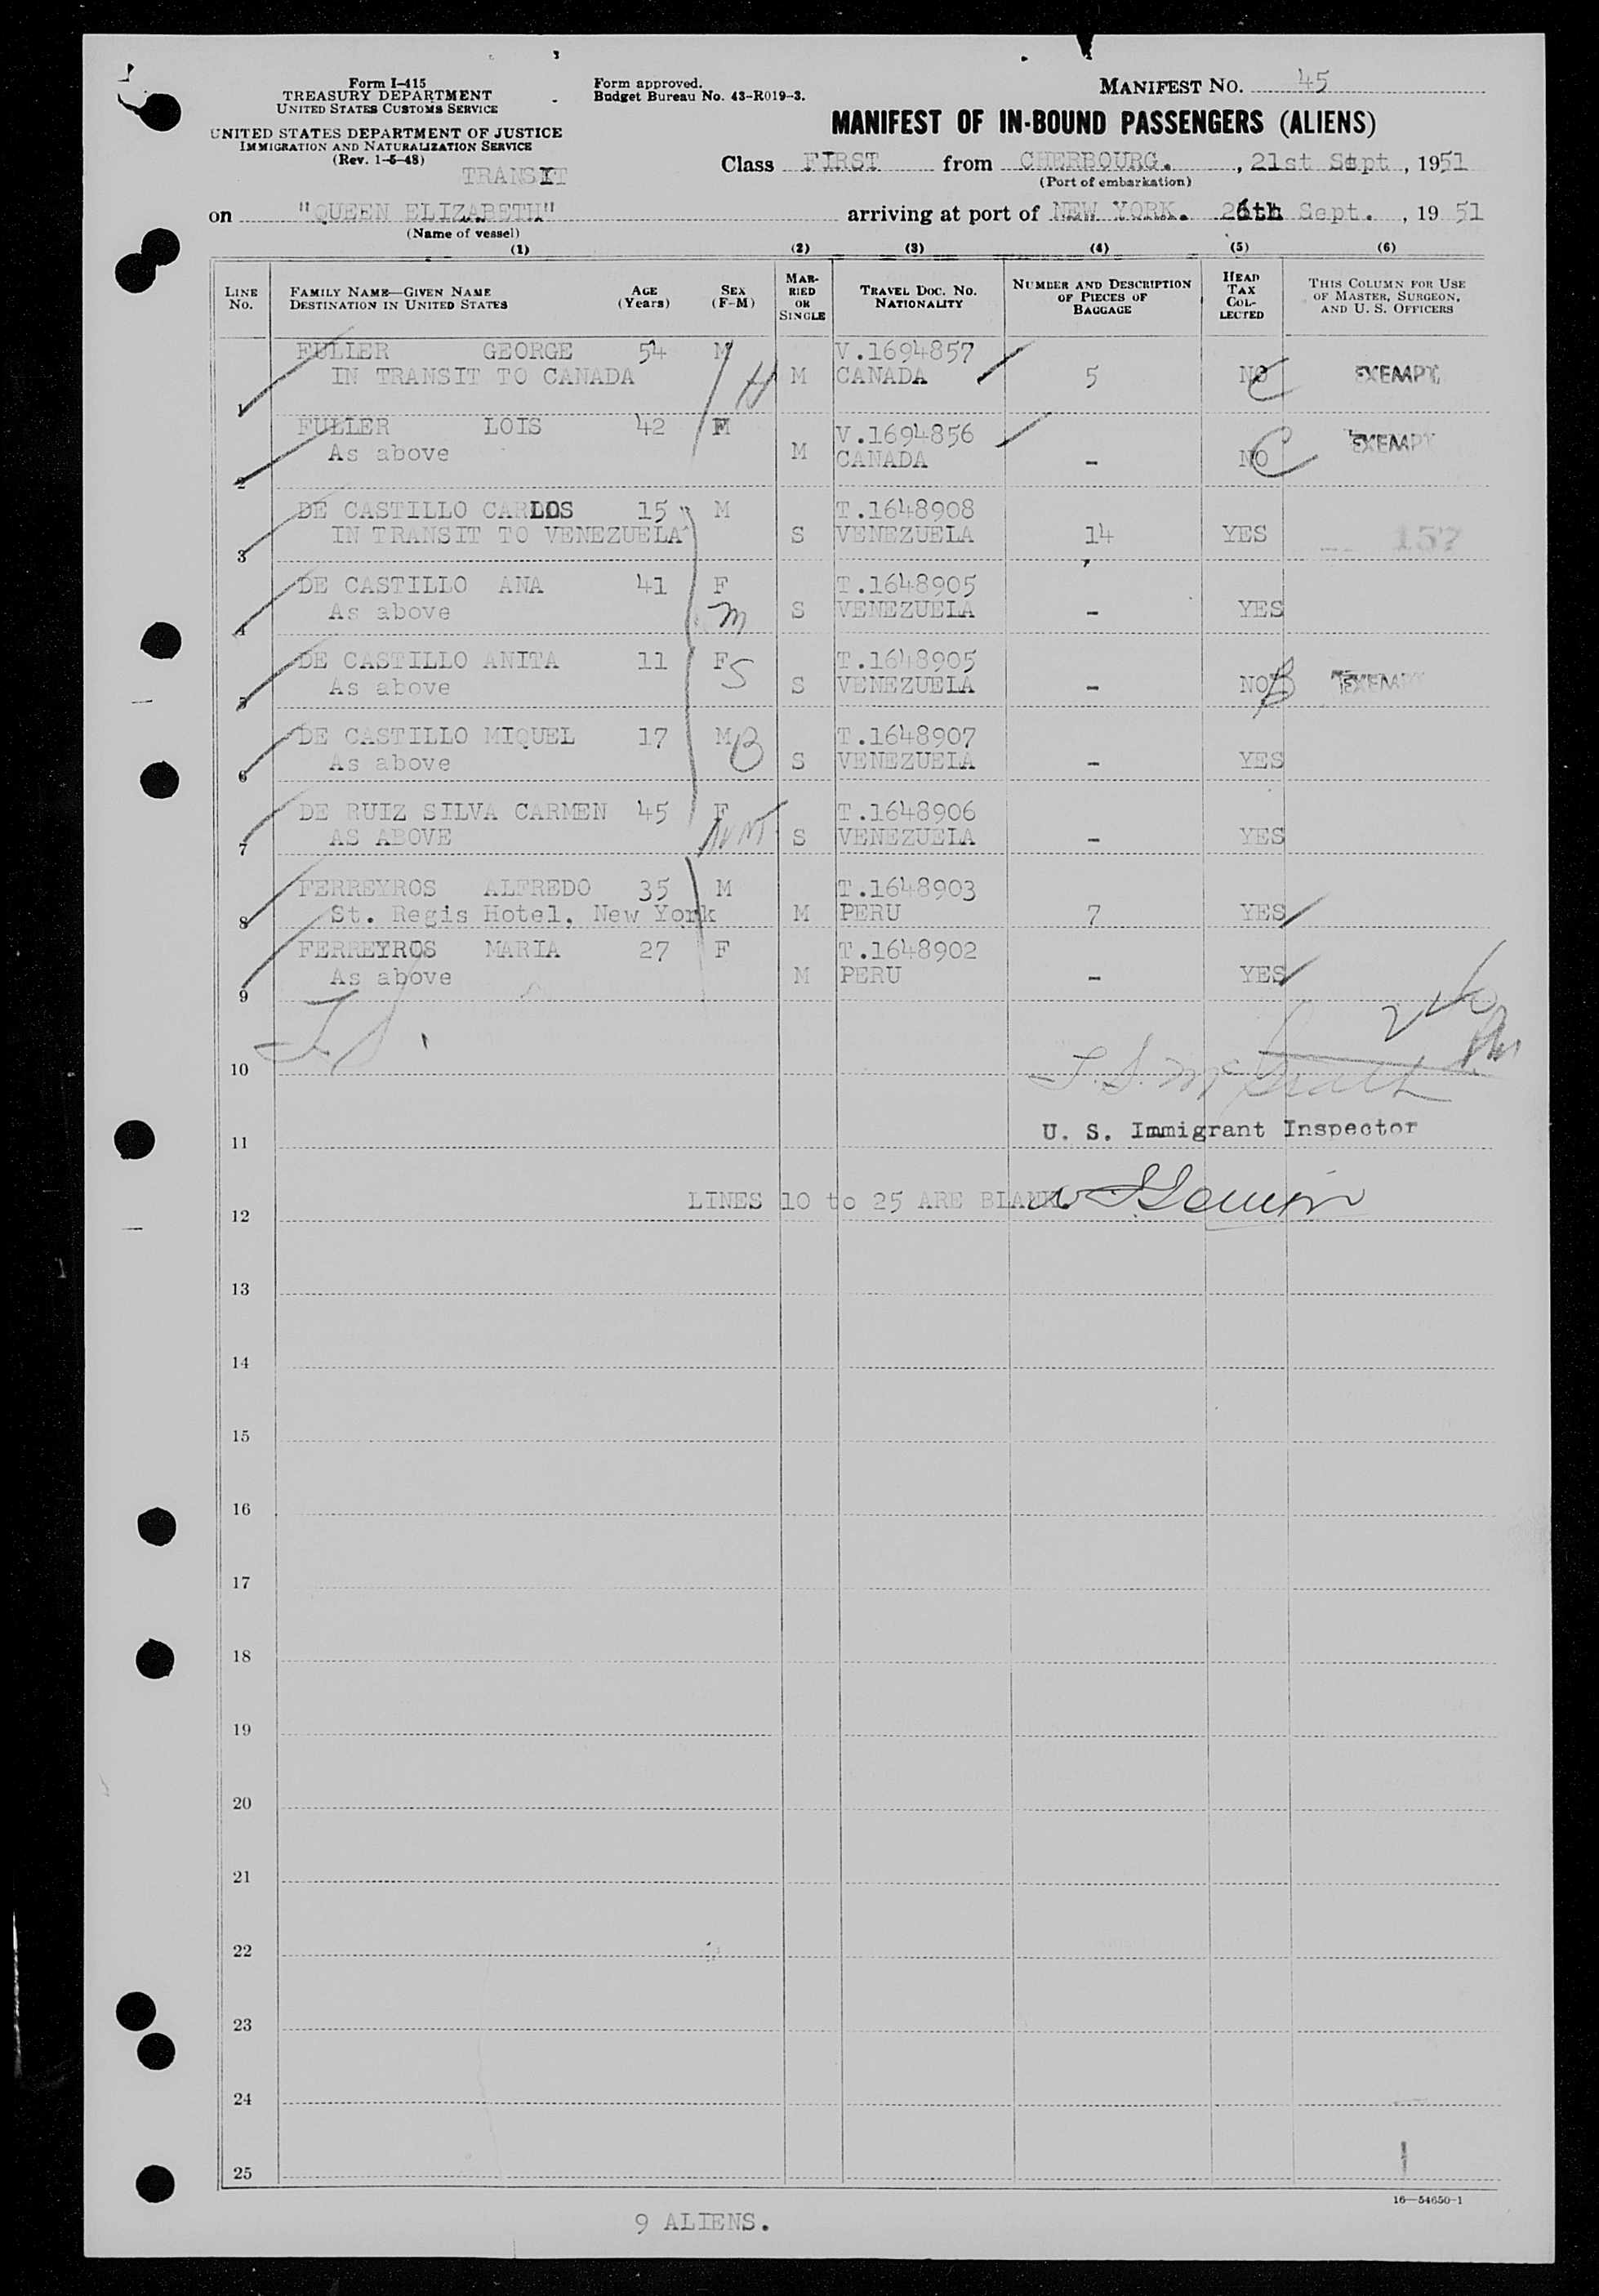 Form I-415
TREASURY DEPARTMENT
UNITED STATES CUSTOMS SERVICE
UNITED STATES DEPARTMENT OF JUSTICE
IMMIGRATION AND NATURALIZATION SERVICE
(Rev. 1-5-48)
TRANSIT
Form approved.
Budget Bureau No. 43-R019-3.
MANIFEST NO. 45
MANIFEST OF IN-BOUND PASSENGERS (ALIENS)
Class FIRST from CHERBOURG. , 21st Sept , 1951
(Port of embarkation)
on "QUEEN ELIZABETH" arriving at port of NEW YORK. 26th Sept. , 19 51
(Name of vessel)
(1) (2) (3) (4) (5) (6)
LINE No. FAMILY NAME—GIVEN NAME DESTINATION IN UNITED STATES AGE (Years) SEX (F-M) MARRIED OR SINGLE TRAVEL DOC. NO. NATIONALITY NUMBER AND DESCRIPTION OF PIECES OF BAGGAGE HEAD TAX COLLECTED THIS COLUMN FOR USE OF MASTER, SURGEON, AND U. S. OFFICERS
FULLER GEORGE 54 M V.1694857
1 IN TRANSIT TO CANADA H M CANADA 5 NO C EXEMPT
FULLER LOIS 42 F V.1694856
2 As above M CANADA - NO C EXEMPT
DE CASTILLO CARLOS 15 M T.1648908
3 IN TRANSIT TO VENEZUELA S VENEZUELA 14 YES 157
DE CASTILLO ANA 41 F T.1648905
4 As above m S VENEZUELA - YES
DE CASTILLO ANITA 11 F T.1648905
5 As above S S VENEZUELA - NO B EXEMPT
DE CASTILLO MIQUEL 17 M T.1648907
6 As above B S VENEZUELA - YES
DE RUIZ SILVA CARMEN 45 F T.1648906
7 AS ABOVE S VENEZUELA - YES
FERREYROS ALFREDO 35 M T.1648903
8 St. Regis Hotel, New York M PERU 7 YES
FERREYROS MARIA 27 F T.1648902
9 As above M PERU - YES
10
11 U. S. Immigrant Inspector
12 LINES 10 to 25 ARE BLANK.
13
14
15
16
17
18
19
20
21
22
23
24
25
16—54650-1
9 ALIENS.